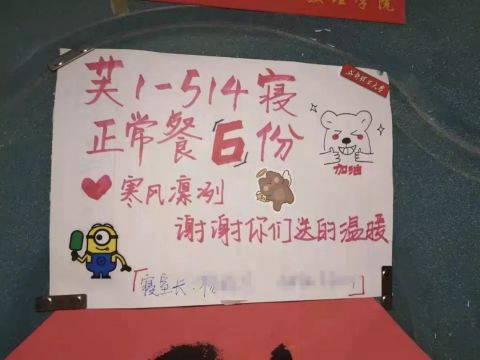 理学院
芙1-514寝
正常餐「6」份
加油
寒风凛冽
谢谢你们送的温暖
「寝室长: